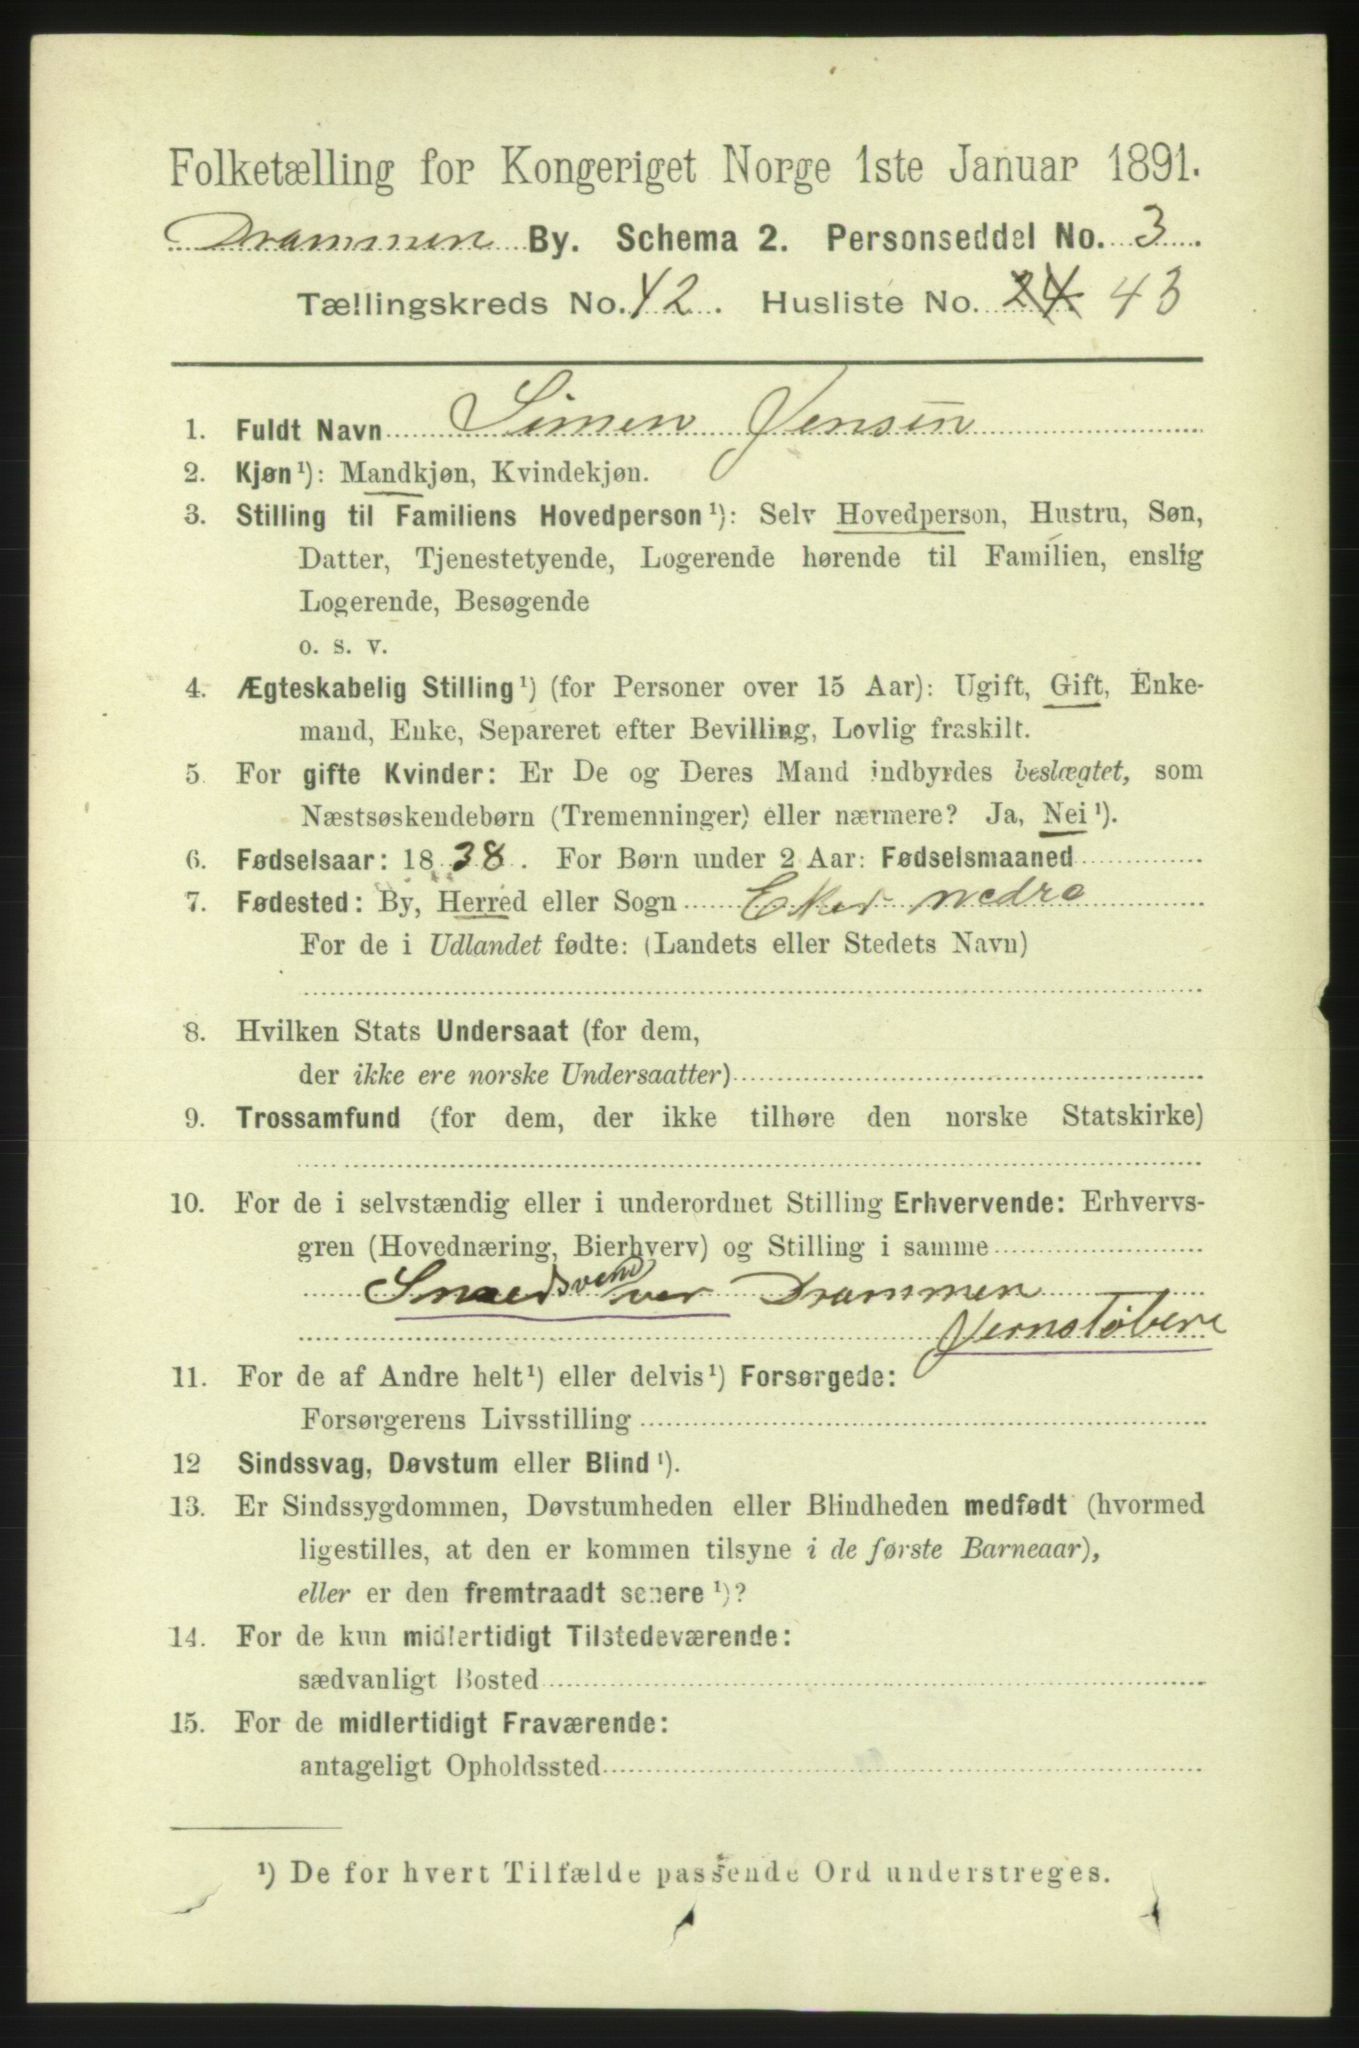 Folketælling for Kongeriget Norge 1ste Januar 1891.
Drammen By. Schema 2. Personseddel No. 3.
Tællingskreds No. 42. Husliste No. 24 43
1. Fuldt Navn Simen Jensen
2. Kjøn¹): Mandkjøn, Kvindekjøn.
3. Stilling til Familiens Hovedperson¹): Selv Hovedperson, Hustru, Søn,
Datter, Tjenestetyende, Logerende hørende til Familien, enslig
Logerende, Besøgende
o. s. v.
4. Ægteskabelig Stilling¹) (for Personer over 15 Aar): Ugift, Gift, Enke-
mand, Enke, Separeret efter Bevilling, Lovlig fraskilt.
5. For gifte Kvinder: Er De og Deres Mand indbyrdes beslægtet, som
Næstsøskendebørn (Tremenninger) eller nærmere? Ja, Nei¹).
6. Fødselsaar: 1838. For Børn under 2 Aar: Fødselsmaaned
7. Fødested: By, Herred eller Sogn Eker nedre
For de i Udlandet fødte: (Landets eller Stedets Navn)
8. Hvilken Stats Undersaat (for dem,
der ikke ere norske Undersaatter)
9. Trossamfund (for dem, der ikke tilhøre den norske Statskirke)
10. For de i selvstændig eller i underordnet Stilling Erhvervende: Erhvervs-
gren (Hovednæring, Bierhverv) og Stilling i samme
Smedsvend ver Drammen
Jernstøberi
11. For de af Andre helt¹) eller delvis¹) Forsørgede:
Forsørgerens Livsstilling
12 Sindssvag, Døvstum eller Blind¹).
13. Er Sindssygdommen, Døvstumheden eller Blindheden medfødt (hvormed
ligestilles, at den er kommen tilsyne i de første Barneaar),
eller er den fremtraadt senere¹)?
14. For de kun midlertidigt Tilstedeværende:
sædvanligt Bosted
15. For de midlertidigt Fraværende:
antageligt Opholdssted
¹) De for hvert Tilfælde passende Ord understreges.